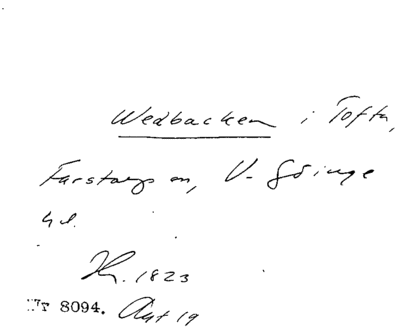 Wedbacken i Tofta,
Farstorps sn, V. Göinge
hd.
1823
Nr 8094. Akt 19